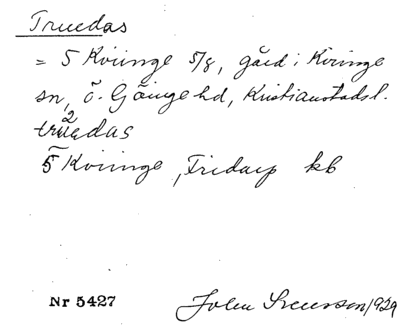 Truedas
= 5 Kviinge 5/8, gård i Kviinge
sn, Ö. Göinge hd, Kristianstads l.
truedas
5 Kviinge, Tridarp kb
Nr 5427 John Svensson 1929